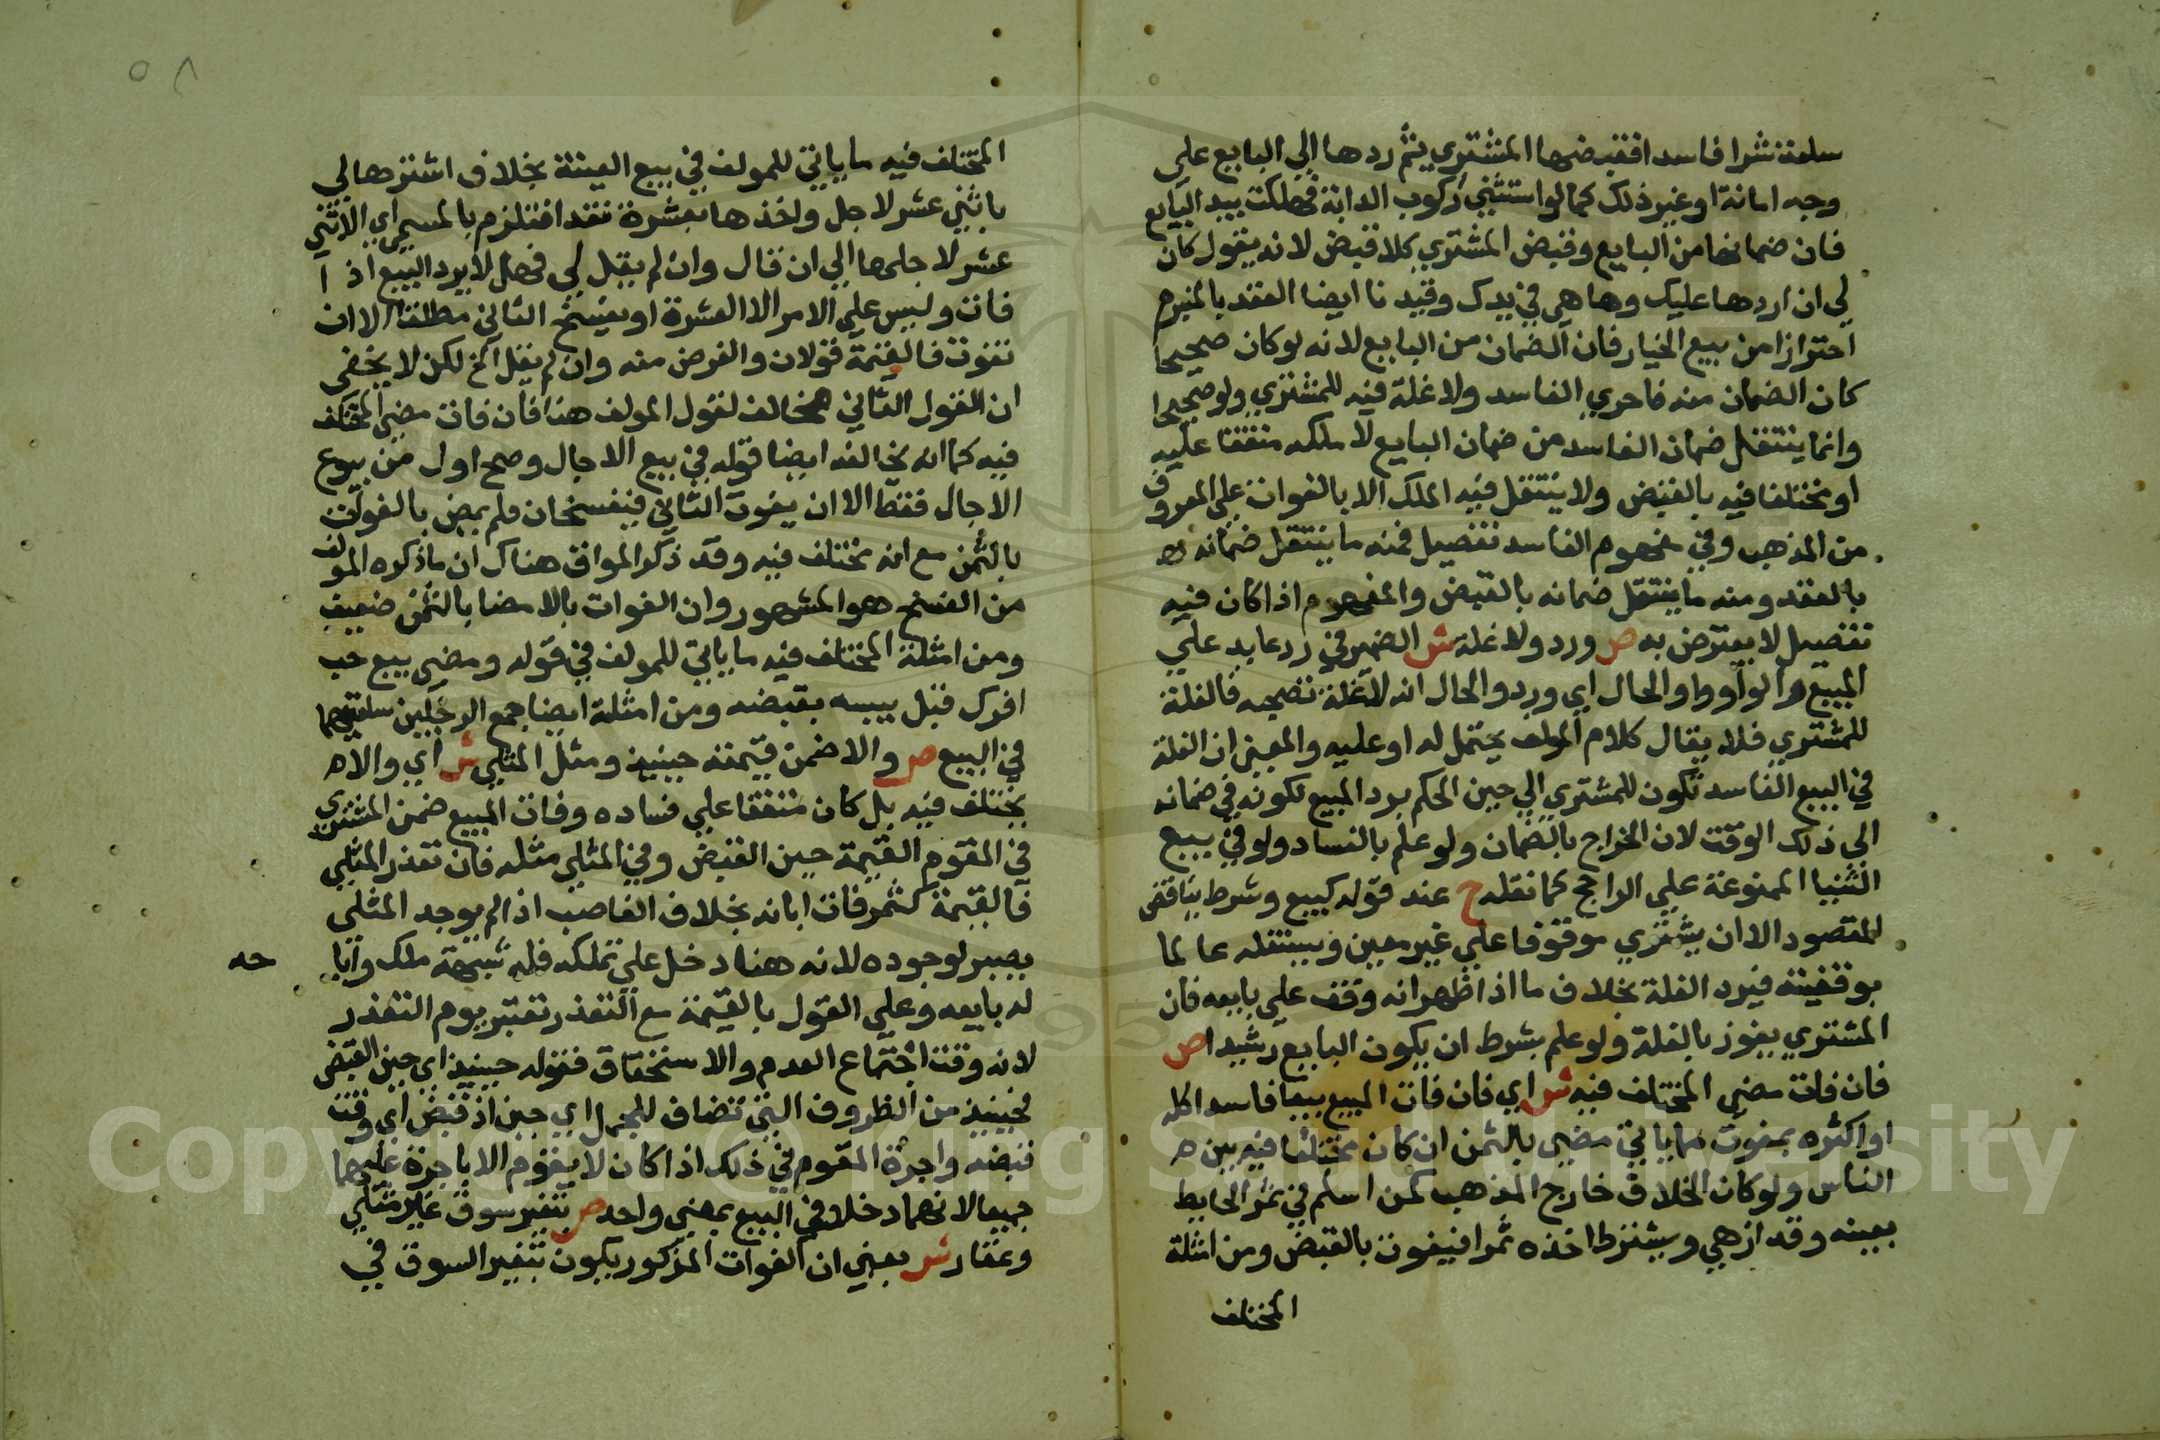 سلعة شرا فاسدا فقبضها المشتري ثم ردها الي البايع علي
وجه امانة او غير ذلك كما لو استثني ركوب الدابة فهلكت بيد البايع
فان ضمانها من البايع وقبض المشتري كلا قبض لانه يقول كان
لي ان اردها عليك وها هي في يدك وقيدنا ايضا العقد بالمنبرم
احترازا من بيع الخيار فان الضمان من البايع لانه لو كان صحيحا
كان الضمان منه فاحري الفاسد ولا غلة فيه للمشتري ولو صحيحا
وانما ينتقل ضمان الفاسد من ضمان البايع لا ملكه متفقا عليه
او مختلفا فيه بالقبض ولا ينتقل فيه الملك الا بالفوات علي المعروف
من المذهب وفي مفهوم الفاسد تفصيل فمنه ما ينتقل ضمانه
بالعقد ومنه ما ينتقل ضمانه بالقبض والمفهوم اذا كان فيه
تفصيل لا يعترض به ص ورد ولا غلة ش الضمير في رد عايد علي
المبيع والواو واو الحال اي ورد والحال انه لا غلة تصحبه فالغلة
للمشتري فلا يقال كلام المولف يحتمل له او عليه والمعني ان الغلة
في البيع الفاسد تكون للمشتري الي حين الحكم برد المبيع لكونه في ضمانه
الي ذلك الوقت لان الخراج بالضمان ولو علم بالفساد ولو في بيع
الثنيا الممنوعة علي الراجح كما نقله ح عند قوله كبيع وشرط يناقض
المقصود الا ان يشتري موقوفا علي غير معين ويستغله عالما
بوقفيته فيرد الغلة بخلاف ما اذا ظهر انه وقف علي بايعه فان
المشتري يفوز بالغلة ولو علم بشرط ان يكون البايع رشيدا ص
فان فات مضي المختلف فيه ش اي فان فات المبيع بيعا فاسدا كله
او اكثره بمفوت مما ياتي مضي بالثمن ان كان مختلفا فيه بين
الناس ولو كان الخلاف خارج المذهب كمن اسلم في ثمر الحايط
بعينه وقد ازهي ويشترط اخذه تمرا فيفوت بالقبض ومن امثلة
المختلف
المختلف فيه ما ياتي للمولف في بيع العينة بخلاف اشترها لي
باثني عشر لاجل واخذها بعشرة نقدا فتلزم بالمسمي اي الاثني
عشر لاجلها الي ان قال وان لم يقل لي فهل لا يرد البيع اذا
فات وليس علي الامر الا العشرة او يفسخ الثاني مطلقا الا ان
تفوت فالقيمة قولان والفرض منه وان لم يقل الخ لكن لا يخفي
ان القول الثاني مخالف لقول المولف هنا فان فات مضي المختلف
فيه كما انه يخالفه ايضا قوله في بيع الاجال وصح اول من بيوع
الاجال فقط الا ان يفوت الثاني فيفسخان فلم يمض بالفوات
بالثمن مع انه مختلف فيه وقد ذكر المواق هناك ان ما ذكره المولف
من الفسخ هو المشهور وان الفوات بالامضا بالثمن ضعيف
ومن امثلة المختلف فيه ما ياتي للمولف في قوله ومضي بيع حب
افرك قبل يبسه بقبضه ومن امثلة ايضا جمع الرجلين سلعتيهما
في البيع ص والا ضمن قيمته حينيذ ومثل المثلي ش اي والا
يختلف فيه بل كان متفقا علي فساده وفات المبيع ضمن المشتري
في المقوم القيمة حين القبض وفي المثلي مثله فان تعذر المثلي
فالقيمة كثمر فات ابانه بخلاف الغاصب اذا لم يوجد المثلي
يصبر لوجوده لانه هنا دخل علي تملكه فله شبهة ملك واتا حه
له بايعه وعلي القول بالقيمة مع التعذر تعتبر يوم التعذر
لانه وقت اجتماع العدم والاستحقاق فقوله حينيذ اي حين القبض
فحينيذ من الظروف التي تضاف للجمل اي حين اذ قبض اي وقت
قبضه واجرة المقوم في ذلك اذا كان لا يقوم الا باجرة عليهما
جميعا لانهما دخلا في البيع بمعني واحد ص بتغير سوق غير مثلي
وعقار ش يعني ان الفوات المذكور يكون بتغير السوق في